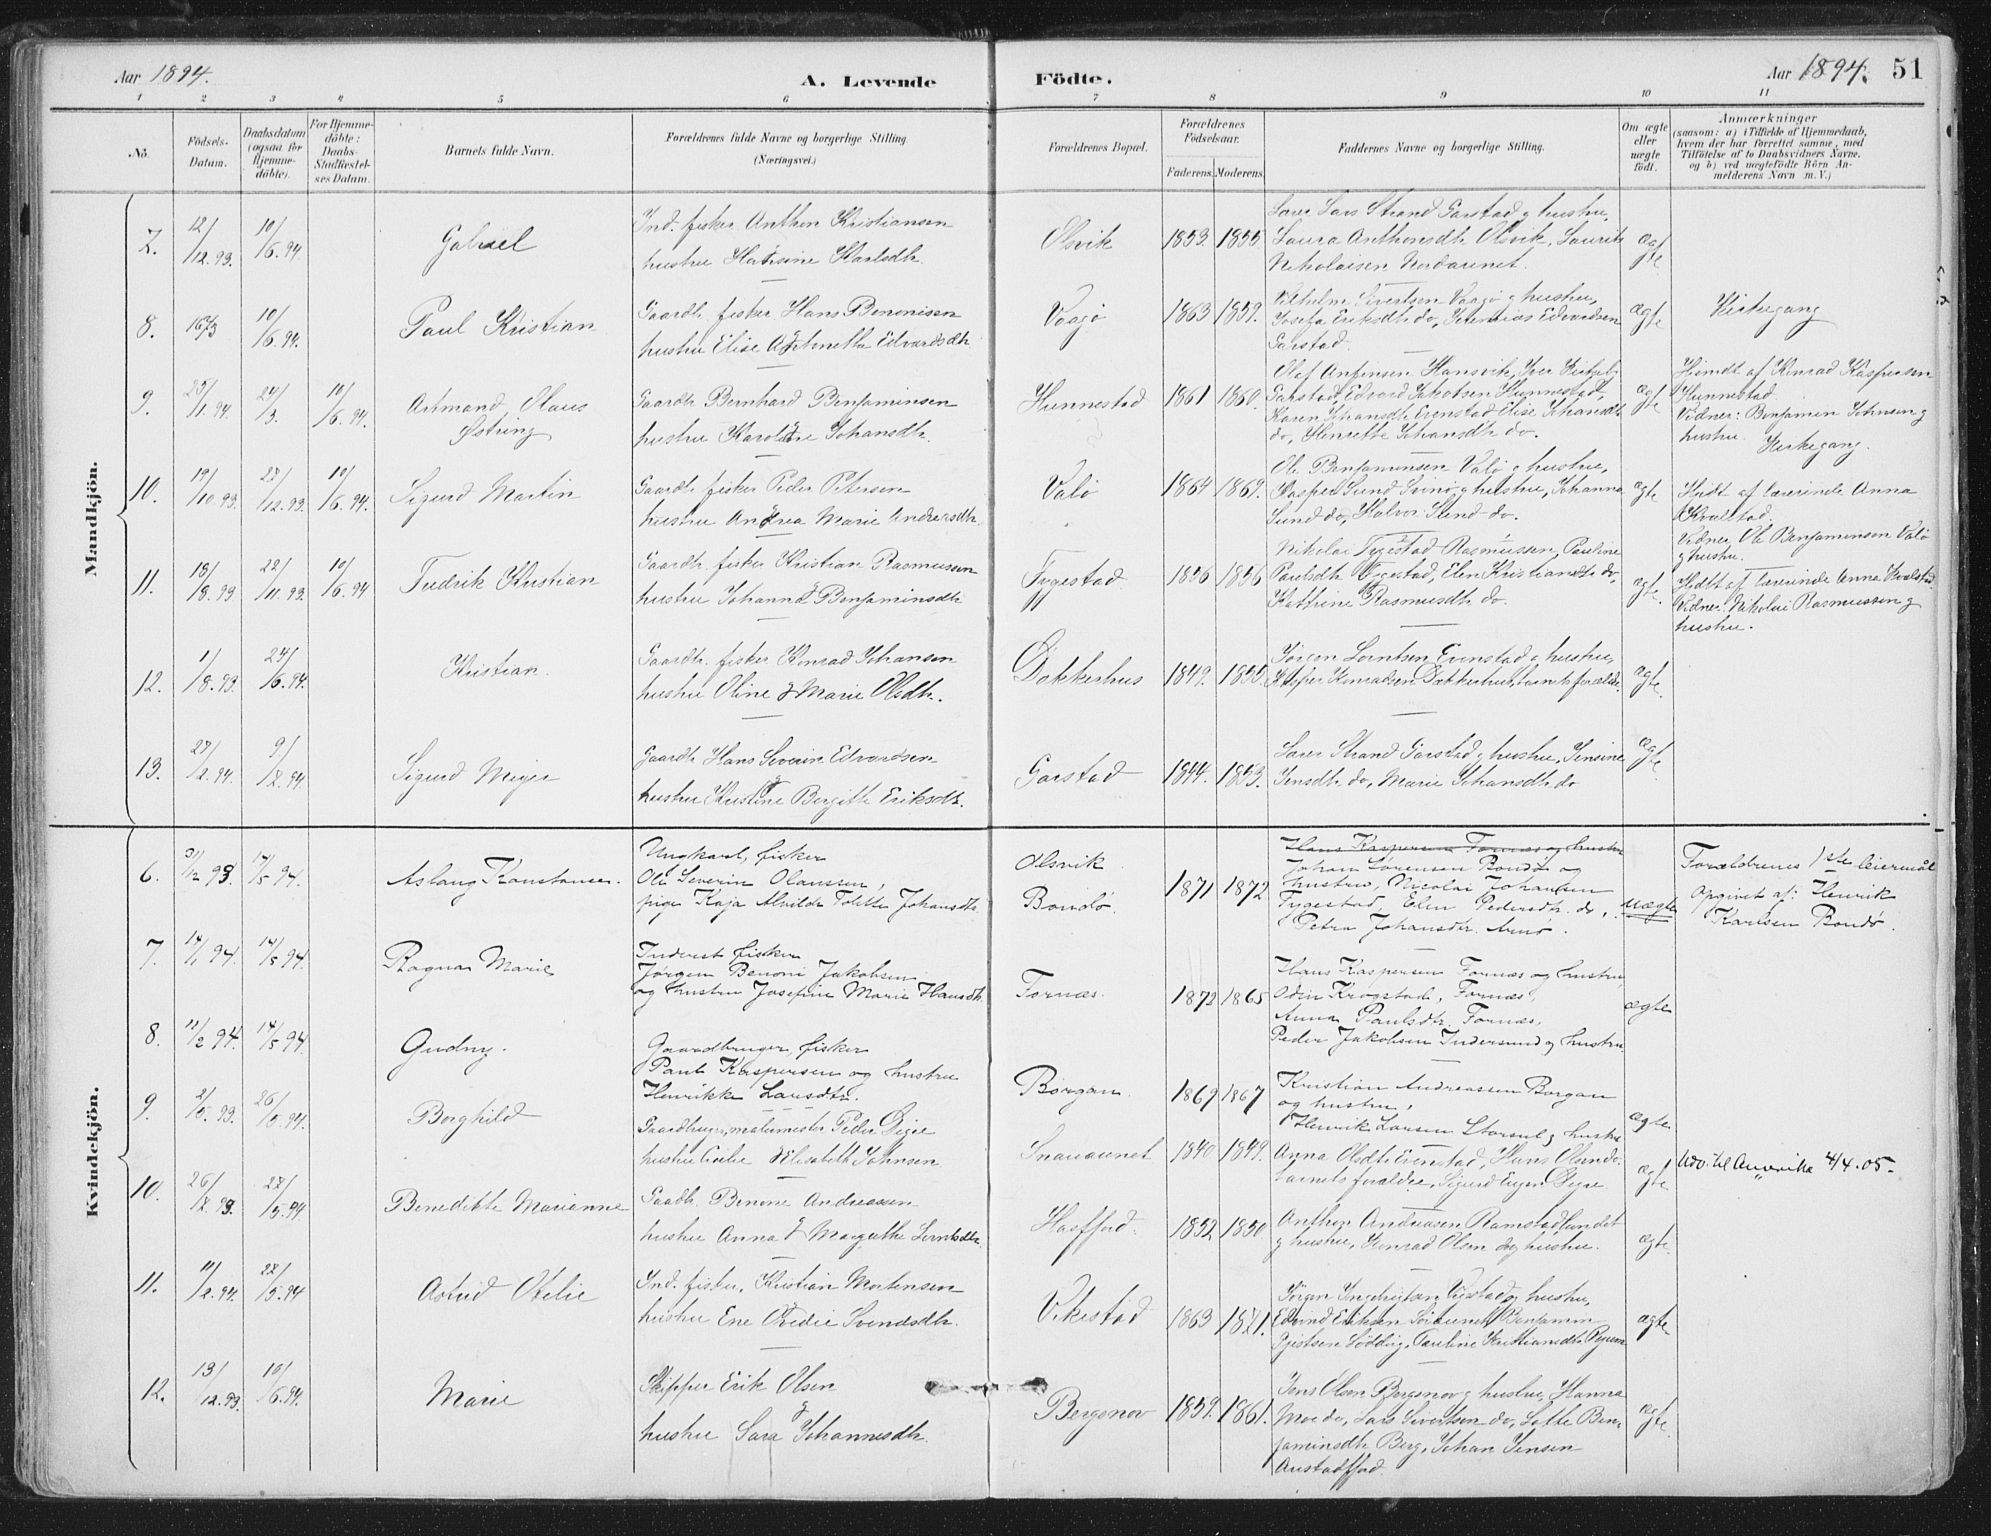 Aar 1894.
A. Levende
Födte.
Aar 1894. 51
1 2 3 4 5 6 7 8 9 10 11
No.
Födsels-
Datum.
Daabsdatum
(ogsaa for
Hjemme-
döbte).
For Hjemme-
döbte:
Daabs-
Stadfæstel-
ses Datum.
Barnets fulde Navn.
Forældrenes fulde Navne og borgerlige Stilling.
(Næringsvei.)
Forældrenes Bopæl.
Forældrenes
Födselsaar.
Faderens. Moderens.
Faddernes Navne og borgerlige Stilling.
Om ægte
eller
uægte
födt.
Anmærkninger
(saasom: a) i Tilfælde af Hjemmedaab,
hvem der har forrettet samme, med
Tilföielse af to Daabsvidners Navne,
og b) ved uægtefödte Börn An-
melderens Navn m. V.)
Mandkjön.
7. 12/12.93. 10/6.94.
Gabriel
Ind. fisker Anthon Kristiansen
hustru Karlsdtr.
Olsvik
1853. 1855
Lærer Lars Strand Garstad og hustru,
Laura Anthonsdtr Olsvik, Laurits
Nikolaisen Nordaunet.
ægte
8. 10/6.94.
Paul Kristian
Gaardb. fisker Hans Benonisen
hustru Elise Antonette Edvardsdtr.
Vaagø
1863 1859.
Vilhelm Sivertsen Vaagø og hustru,
Josefa Eriksdtr do, Jeremias Edvardsen
Garstad.
ægte
Kirkegang
9. 25/1.94 24/3. 10/6.94.
Artmand Olaus
Østring
Gaardb. Bernhard Benjaminsen
hustru Karoline Johansdtr.
Hunnestad
1861 1860.
Olaf Anfinsen Hansvik, Iver
Garstad, Edvard Jakobsen Hunnestad,
Karen Johansdtr Evenstad Elise Johansdtr
do, Henrette Johansdtr do.
ægte
Hjemdt af Konrad Kaspersen
Hunnestad.
Vidner: Benjamin Johnsen og
hustru. Kirkegang.
10. 19/10.93 28/12.93. 10/6.94.
Sigurd Martin
Gaardb. fisker Peder Petersen
hustru Andrea Marie Andersdtr.
Valø
1864 1869.
Ole Benjaminsen Valø og hustru,
Kasper Sund Svinø og hustru, Johanna
Sund do, Halvor Sund do.
ægte
Hjdt af lærerinde Anna
Kvalstad.
Vidner Ole Benjaminsen Valø
og hustru.
11. 18/8.93 22/11.93. 10/6.94
Fredrik Kristian
Gaardb. fisker Kristian Rasmussen
hustru Johanna Benjaminsdtr.
Fygestad
1856 1856
Nikolai Fygestad Rasmussen, Pauline
Paulsdtr Fygestad, Elen Kristiansdtr do,
Kathrine Rasmusdtr do.
ægte.
Hjdt af lærerinde Anna Kvalstad
Vidner: Nikolai Rasmussen og
hustru.
12. 1/8.93. 24/6.94.
Kristian.
Gaardb. fisker Konrad Johansen
hustru Oline Marie Olsdtr.
Døkkerhus
1849. 1855.
Jørgen Lorntsen Evenstad og hustru,
Kasper Konradsen Døkkerhus, barnets forældre.
ægte
13. 27/2.94. 9/12.94
Sigurd Meyer
Gaardb. Hans Severin Edvardsen
hustru Kristine Bergitte Eriksdtr.
Garstad
1844. 1853.
Lærer Strand Garstad og hustru, Jensine
Jensdtr do, Marie Johansdtr do
ægte
Kvindekjön.
6. 31/12 93. 14/5 94.
Aslaug Konstanse.
Ungkarl, fisker
Ole Severin Olaussen,
pige Kaja Alvilde Tolette Johansdtr.
Olsvik
Bondø.
1871 1872
Hans Kaspersen Fornæs og hustru
Johan Sørensen Bondø og
hustru, Nicolai Johansen
Fygestad, Elen Pedersdtr. do,
Petra Johansdtr. Arnø.
uægte
Forældrenes 1ste leiermål
opgivet af: Henrik
Karlsen Bondø.
7. 14/1 94. 14/5 94.
Ragna Marie
Inderst fisker
Jørgen Benoni Jakobsen
og hustru Josefine Marie Hansdtr.
Fornæs.
1872 1865
Hans Kaspersen Fornæs og hustru,
Odin Krogstad, Fornæs,
Anna Paulsdtr, Fornæs,
Peder Jakobsen Indersund og hustru
ægte
8. 11/2 94. 14/5 94.
Gudny.
Gaardbruger, fisker
Paul Kaspersen og hustru
Henrikke Larsdtr.
Børgan.
1869 1867
Kristian Andreassen Borgan
og hustru,
Henrik Larsen Storsul og hustru
ægte
9. 26/5.94.
Borghild
Gaardbruger, Peder Digre
hustru Cecilie Elisabeth Johnsen
Snauaunet
1840 1849.
Anna Olsdtr Evenstad, Hans Olsen do.
barnets forældre, Sigurd Eugen Digre.
ægte
Udv. til Amerika 4/4.05-
10. 26/2.93. 28/5.94
Benedikte Marianne
Gaardb. Benone Andreassen
hustru Anna Margrethe Lorntsdtr.
Hasfjord.
1852 1850.
Anthon Andreasen Ramstadlandet
og hustru, Konrad Olsen do og hustru.
ægte.
11. 11/2.94. 28/5.94
Astrid Otelie
Ind. fisker, Kristian Mortensen
hustru Ene Ovidie Svendsdtr.
Vikestad
1863 1871.
Jørgen Ingebrigtsen og hustru,
Edvind Eriksen Benjamin
Pauline Kristiansdtr
ægte
12. 13/12.93. 10/6.94.
Marie
Skipper Erik Olsen
hustru Sara Johannesdtr.
Bergsnov
1859. 1861.
Jens Olsen Bergsnov og hustru, Hanna
Moe do, Lars Sivertsen do, Lotte Ben-
jaminsdtr Berg, Johan Jensen
Austadfjord.
ægte